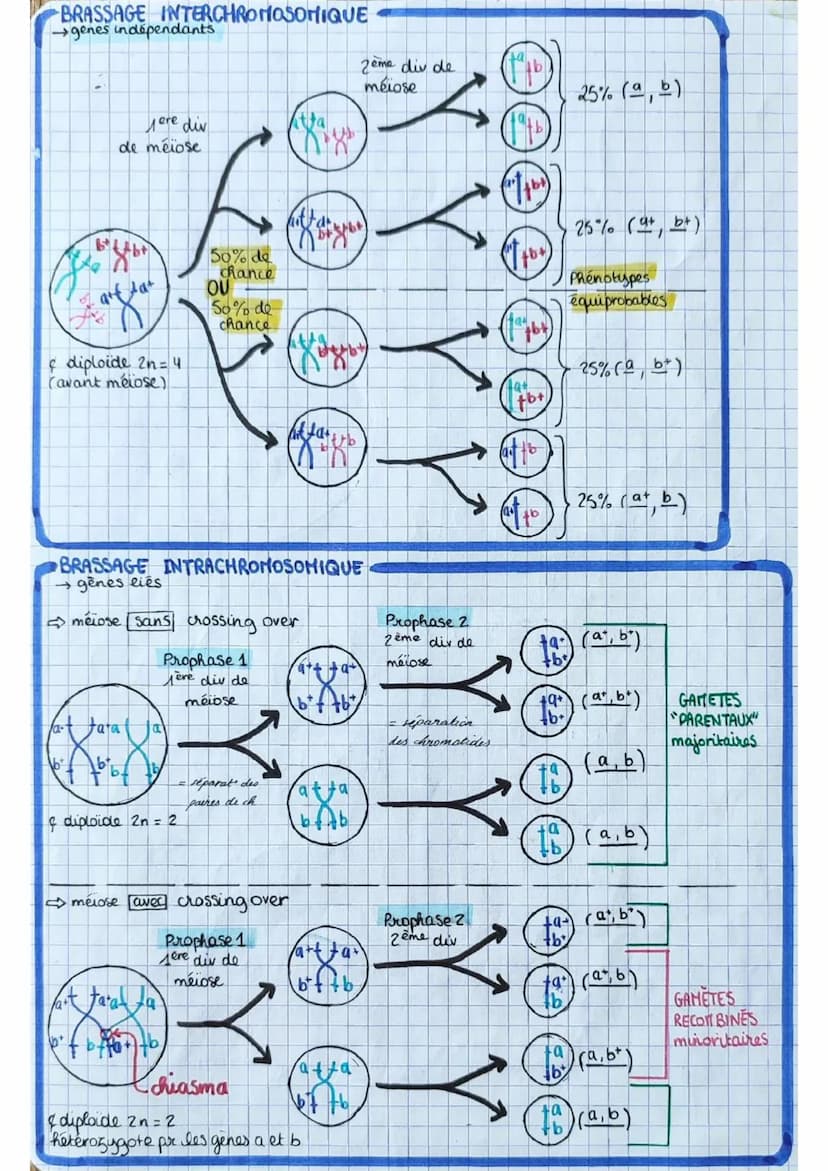 BRASSAGE INTERCHROMOSOMIQUE
→ gènes indépendants
1ère div
de méiose
2ème div de
méiose
50% de
chance
OU
50% de
chance
¢ diploïde 2n = 4
(avant méiose)
b+ b+
a+ a+
a a
b b
a+ a+
b+ b+
a a
b+ b+
a+ a+
b b
a b
a b
25% (a, b)
a+ b+
a+ b+
25% (a+, b+)
Phénotypes
équiprobables
a+ b+
a+ b+
25% (a, b+)
a+ b
a+ b
25% (a+, b)
BRASSAGE INTRACHROMOSOMIQUE
→ gènes liés
⇒ méiose sans crossing over
Prophase 1
1ère div de
méiose
Prophase 2
2ème div de
méiose
= séparation
des chromatides
= séparat° des
paires de ch
a+ a+ a a
b+ b+ b b
¢ diploïde 2n = 2
a+ a+
b+ b+
a a
b b
a+
b+
(a+, b+)
a+
b+
(a+, b+)
a
b
(a, b)
a
b
(a, b)
GAMETES
"PARENTAUX"
majoritaires
⇒ méiose avec crossing over
Prophase 1
1ère div de
méiose
Prophase 2
2ème div
a+ a+ a a
b+ b a+ b
chiasma
¢ diploïde 2n = 2
hétérozygote pr les gènes a et b
a+ a+
b+ b
a a
b+ b
a+
b+
(a+, b+)
a+
b
(a+, b)
a
b+
(a, b+)
a
b
(a, b)
GAMÈTES
RECOMBINÉS
minoritaires